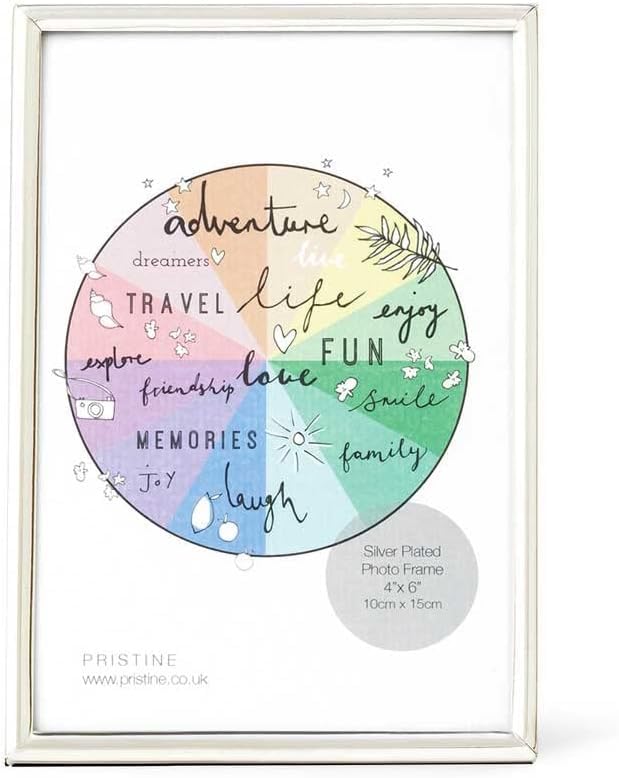 adventure
dreamers
live
TRAVEL
life
enjoy
explore
love
FUN
friendship
smile
MEMORIES
family
joy
laugh
Silver Plated
Photo Frame
4"x 6"
10cm x 15cm
PRISTINE
www.pristine.co.uk